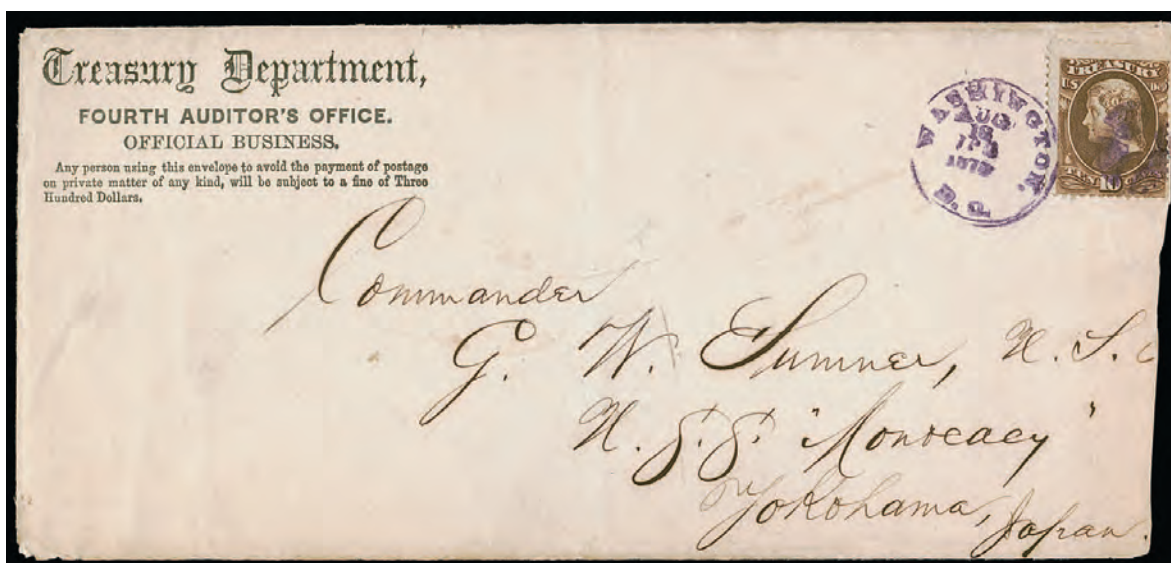 Treasury Department,
FOURTH AUDITOR'S OFFICE.
OFFICIAL BUSINESS.
Any person using this envelope to avoid the payment of postage
on private matter of any kind, will be subject to a fine of Three
Hundred Dollars.
WASHINGTON,
AUG
18
D.C.
TREASURY
U.S.
TEN 10 CENTS
Commander
G. W. Sumner, U. S.
U. S. S. "Monocacy"
Yokohama, Japan.